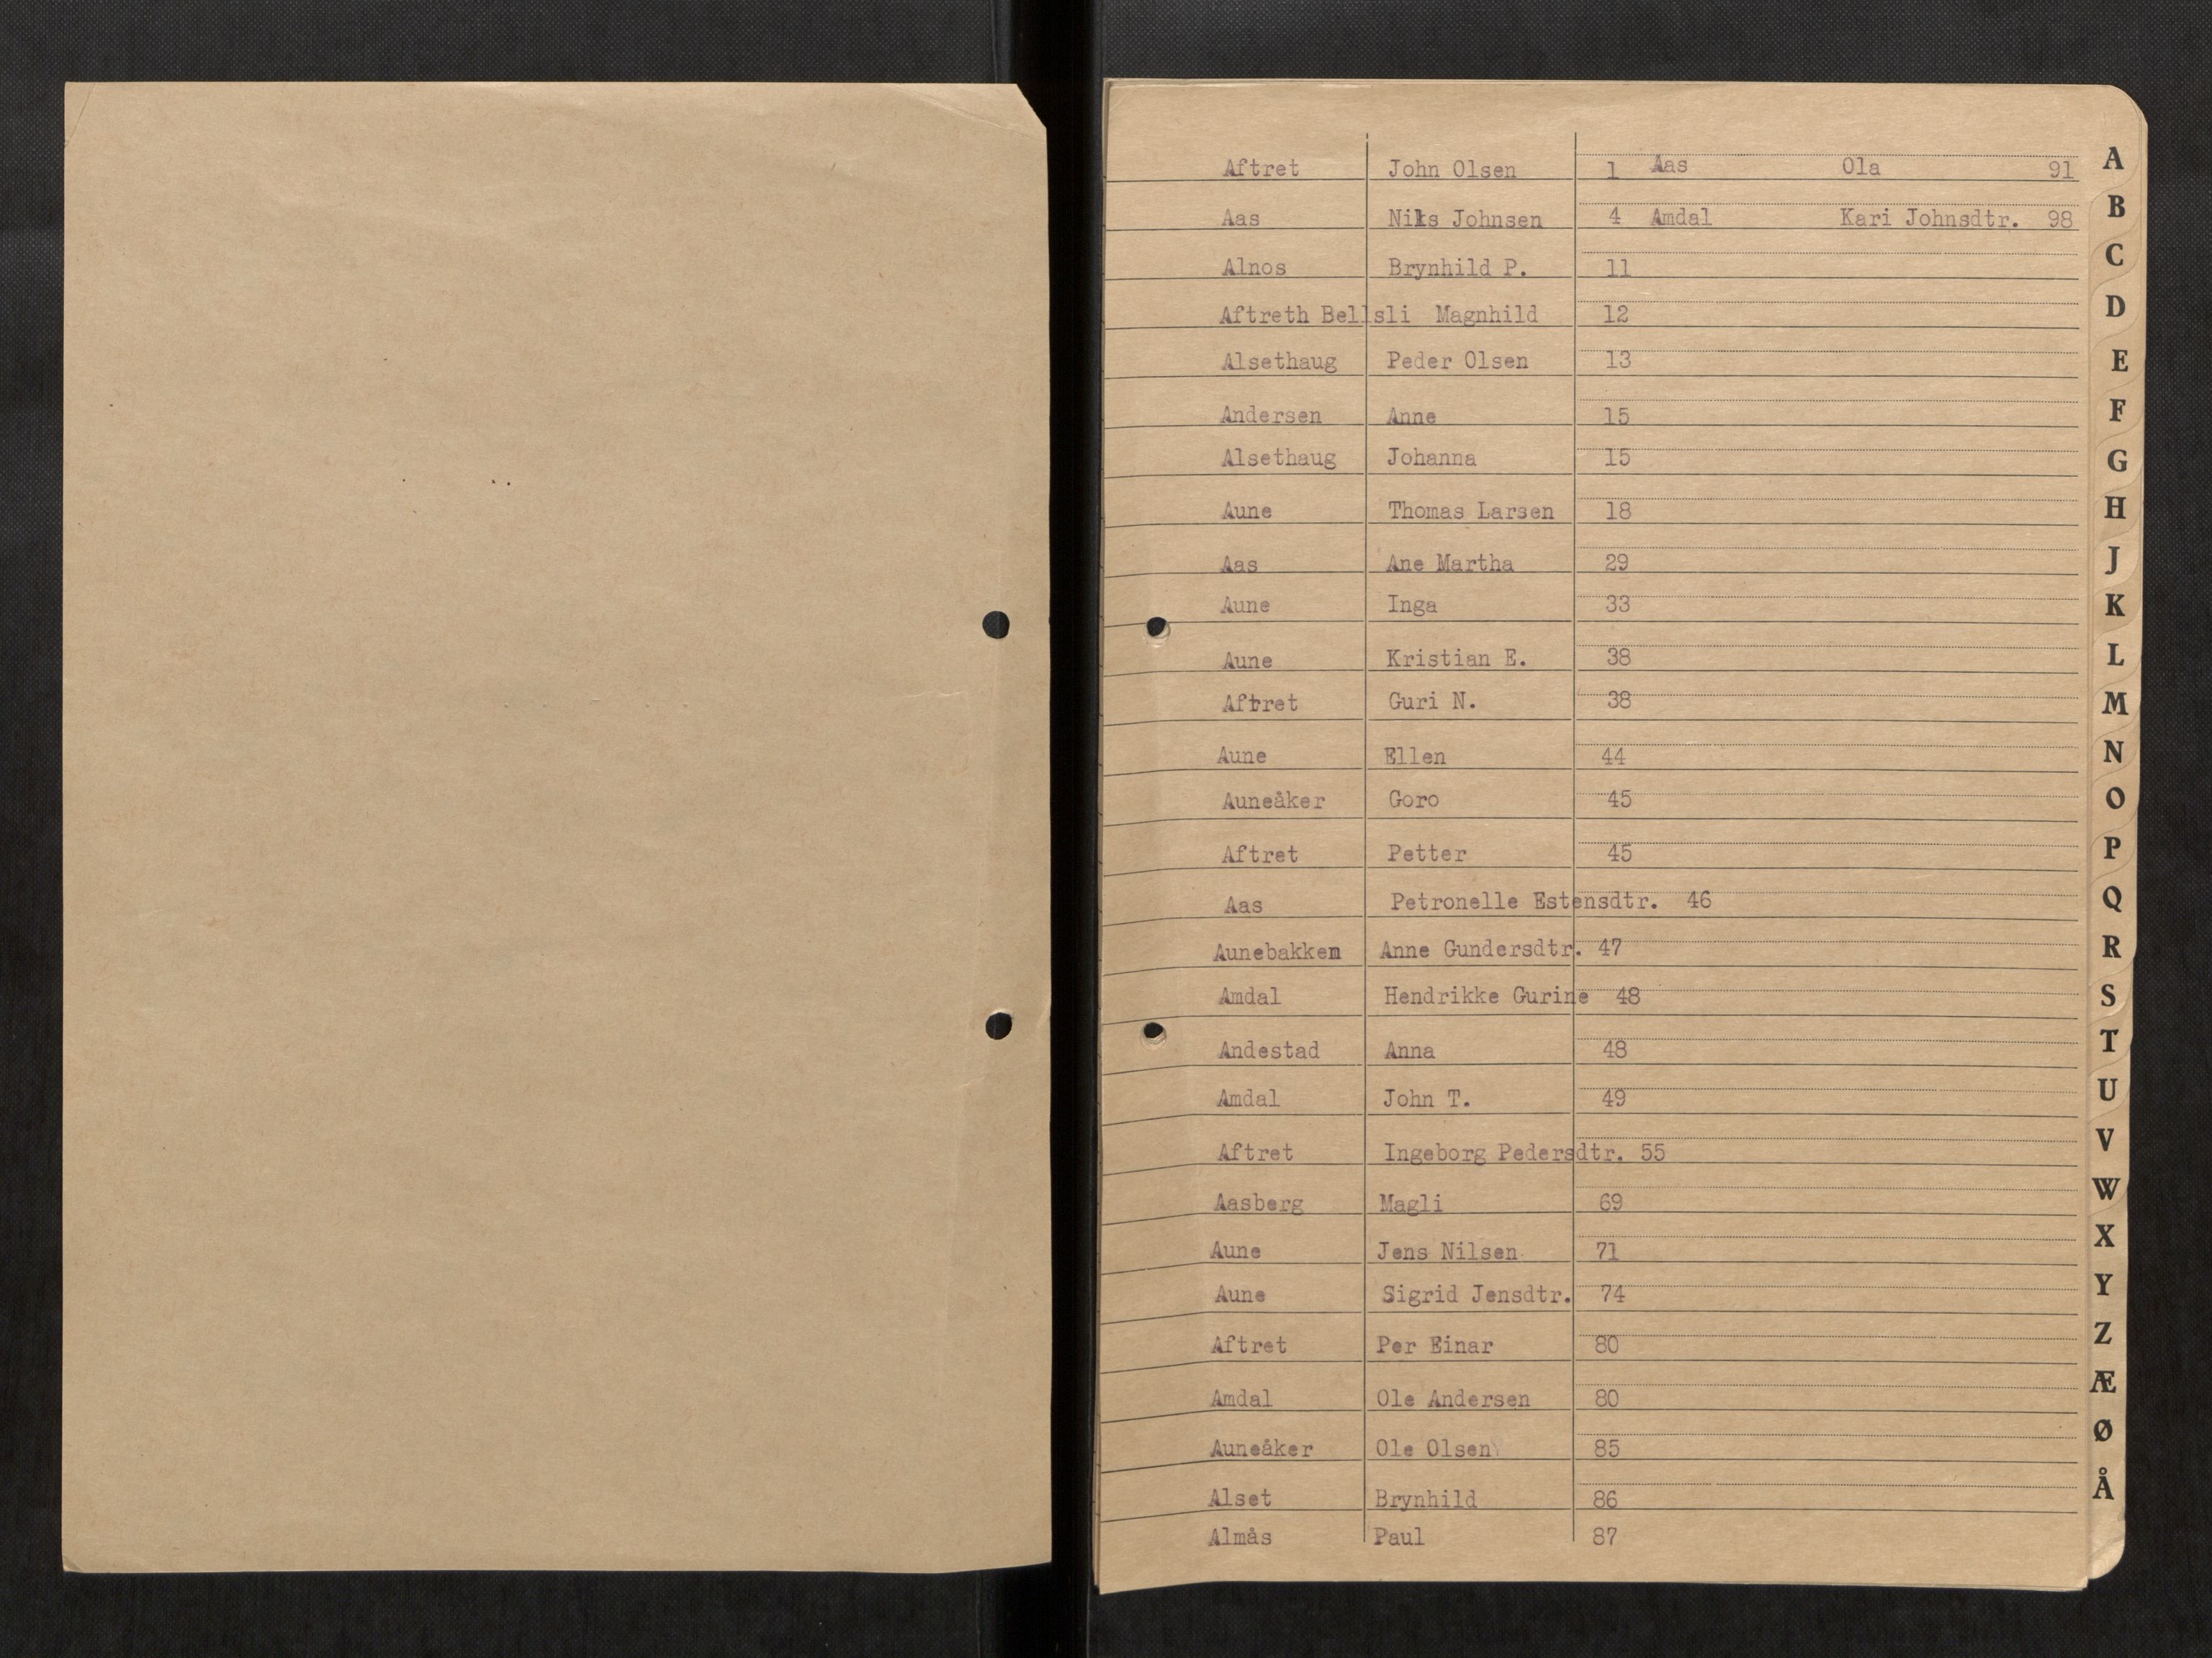 Aftret John Olsen 1 Aas Ola 91
Aas Nils Johnsen 4 Amdal Kari Johnsdtr. 98
Alnos Brynhild P. 11
Aftreth Bellsli Magnhild 12
Alsethaug Peder Olsen 13
Andersen Anne 15
Alsethaug Johanna 15
Aune Thomas Larsen 18
Aas Ane Martha 29
Aune Inga 33
Aune Kristian E. 38
Aftret Guri N. 38
Aune Ellen 44
Auneåker Goro 45
Aftret Petter 45
Aas Petronelle Estensdtr. 46
Aunebakken Anne Gundersdtr. 47
Amdal Hendrikke Gurine 48
Andestad Anna 48
Amdal John T. 49
Aftret Ingeborg Pedersdtr. 55
Aasberg Magli 69
Aune Jens Nilsen 71
Aune Sigrid Jensdtr. 74
Aftret Per Einar 80
Amdal Ole Andersen 80
Auneåker Ole Olsen 85
Alset Brynhild 86
Almås Paul 87
A
B
C
D
E
F
G
H
J
K
L
M
N
O
P
Q
R
S
T
U
V
W
X
Y
Z
Æ
Ø
Å